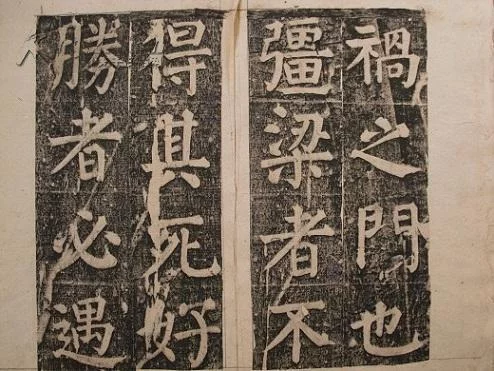 禍之門也
彊梁者不
得其死好
勝者必遇